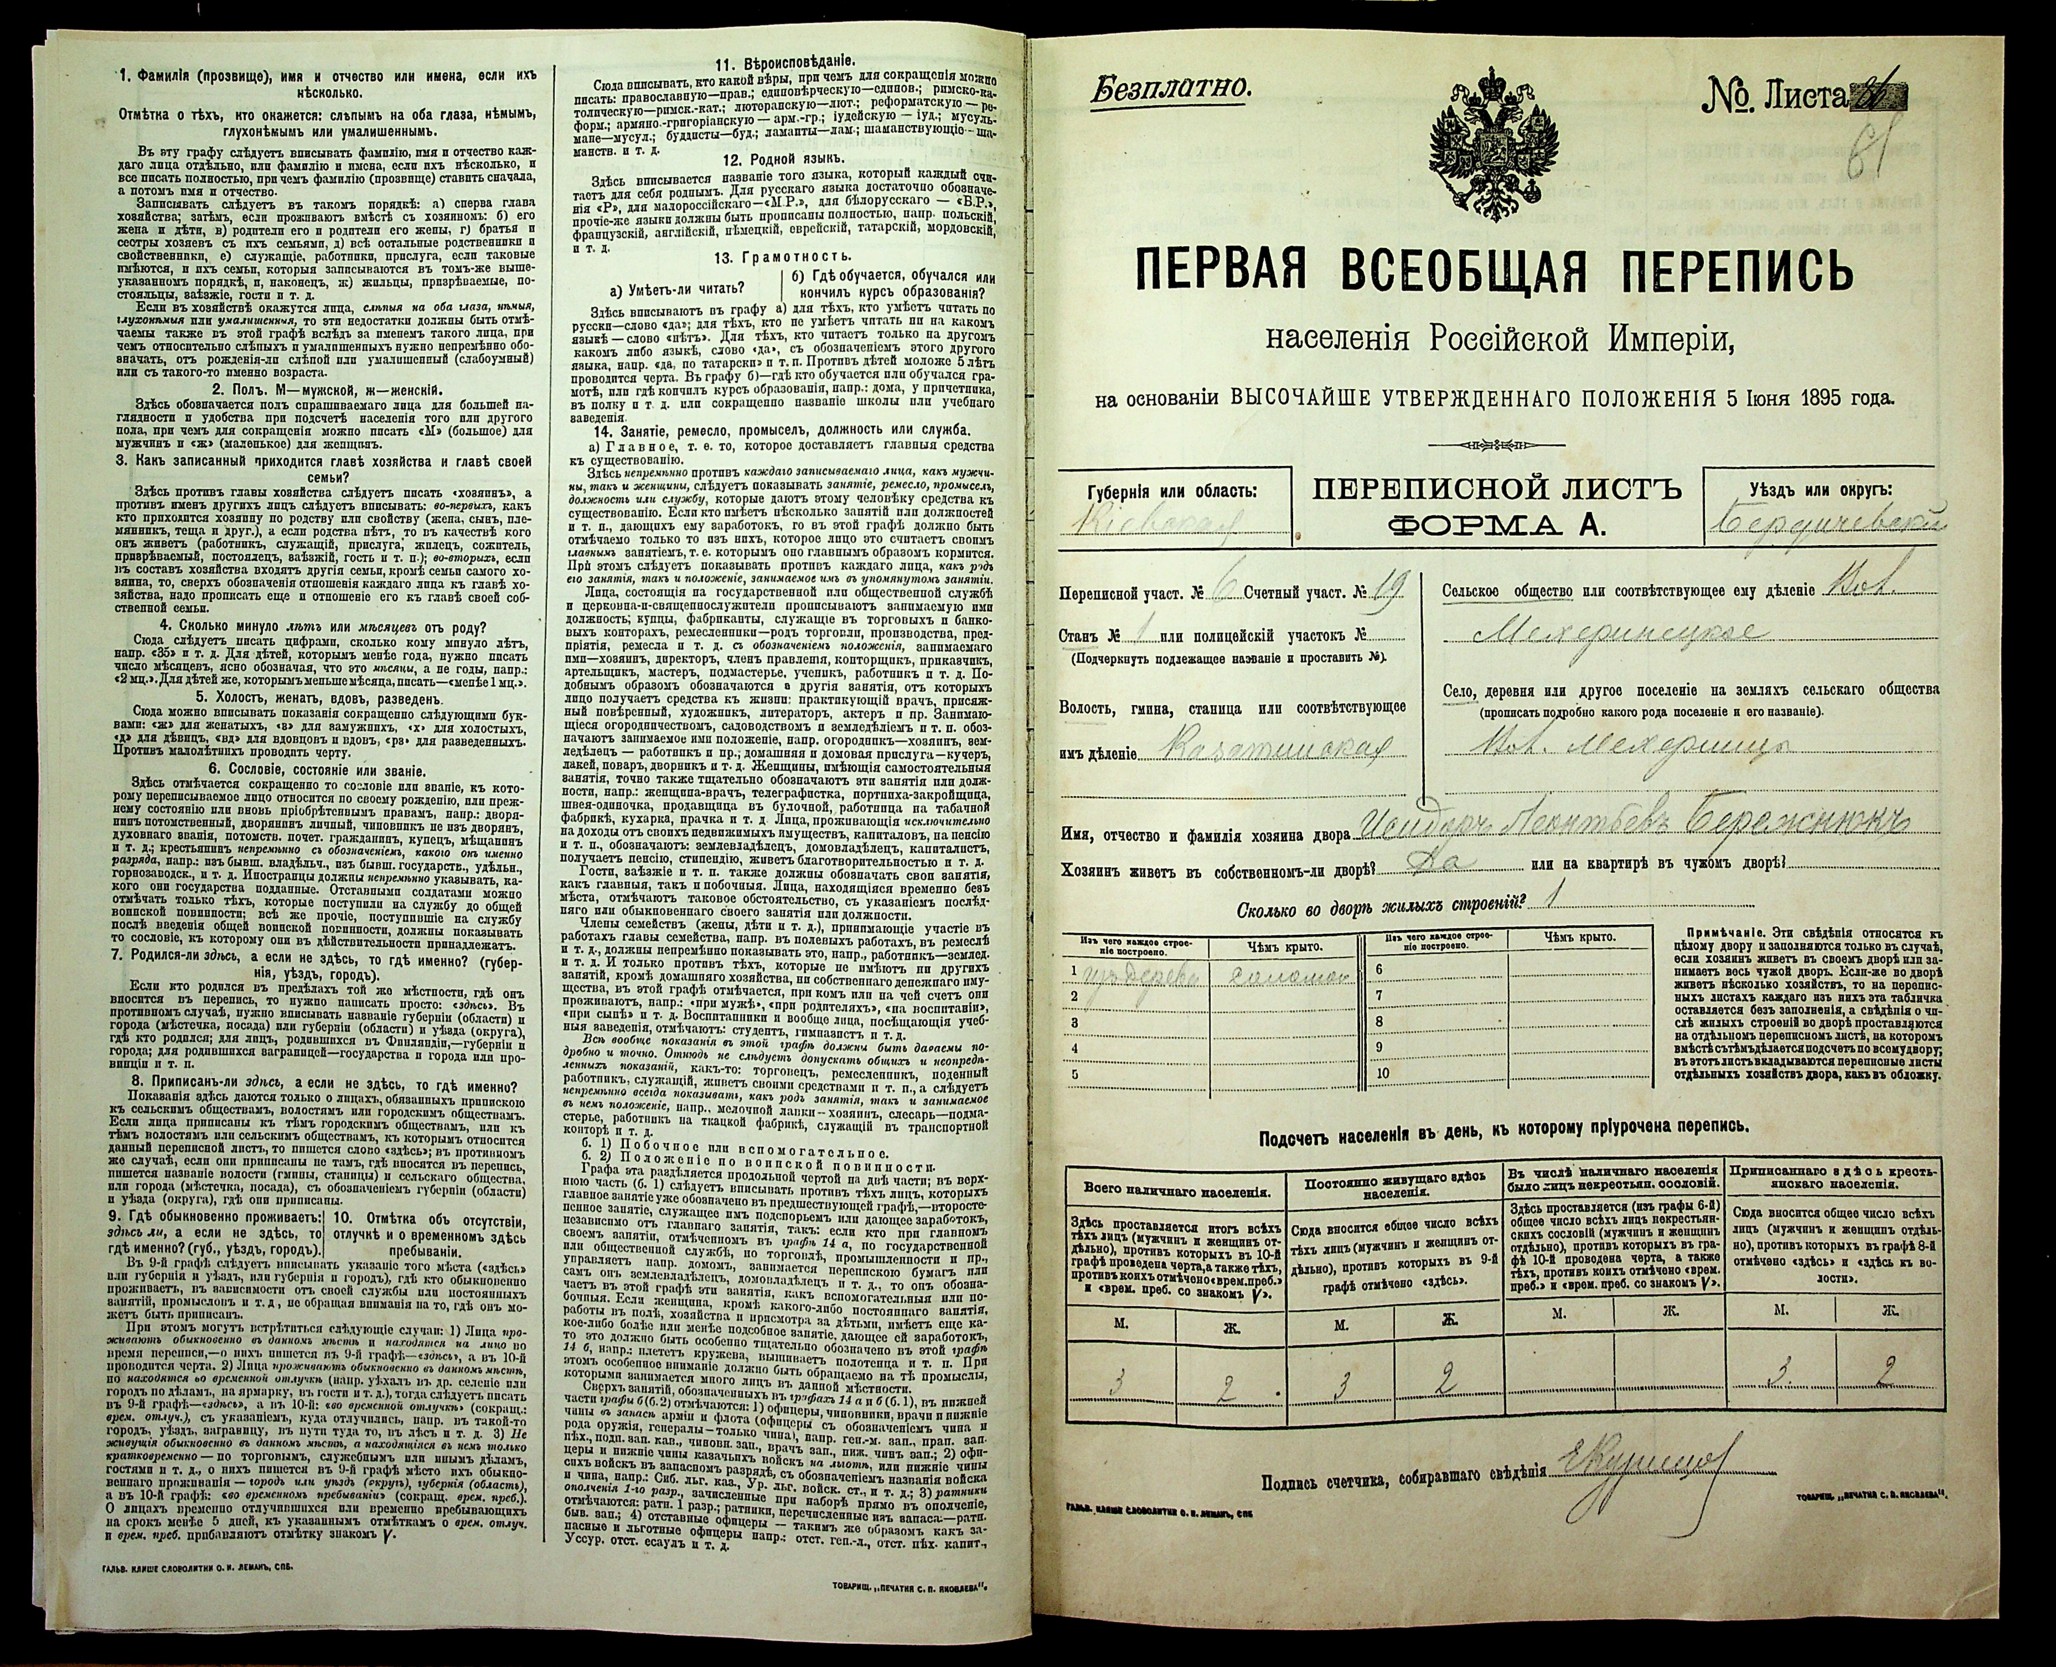 1. Фамилія (прозвище), имя и отчество или имена, если ихъ
нѣсколько.
Отмѣтка о тѣхъ, кто окажется: слѣпымъ на оба глаза, нѣмымъ,
глухонѣмымъ или умалишеннымъ.
Въ эту графу слѣдуетъ вписывать фамилію, имя и отчество каж-
даго лица отдѣльно, или фамилію и имена, если ихъ нѣсколько, и
все писать полностью, при чемъ фамилію (прозвище) ставить сначала,
а потомъ имя и отчество.
Записывать слѣдуетъ въ такомъ порядкѣ: а) сперва глава
хозяйства; затѣмъ, если проживаютъ вмѣстѣ съ хозяиномъ: б) его
жена и дѣти, в) родители его и родители его жены, г) братья и
сестры хозяевъ съ ихъ семьями, д) всѣ остальные родственники и
свойственники, е) служащіе, работники, прислуга, если таковые
имѣются, и ихъ семьи, которыя записываются въ томъ-же выше-
указанномъ порядкѣ, и, наконецъ, ж) жильцы, призрѣваемые, по-
стояльцы, заѣзжіе, гости и т. п.
Если въ хозяйствѣ окажутся лица, слѣпыя на оба глаза, нѣмыя,
глухонѣмыя или умалишенныя, то эти недостатки должны быть отмѣ-
чаемы также въ этой графѣ вслѣдъ за именемъ такого лица, при
чемъ относительно слѣпыхъ и умалишенныхъ нужно непремѣнно обо-
значать, отъ рожденія-ли слѣпой или умалишенный (слабоумный)
или съ такого-то именно возраста.
2. Полъ. М—мужской, ж—женскій.
Здѣсь обозначается полъ спрашиваемаго лица для большей на-
глядности и удобства при подсчетѣ населенія того или другого
пола, при чемъ для сокращенія можно писать «М» (большое) для
мужчинъ и «ж» (маленькое) для женщинъ.
3. Какъ записанный приходится главѣ хозяйства и главѣ своей
семьи?
Здѣсь противъ главы хозяйства слѣдуетъ писать «хозяинъ», а
противъ именъ другихъ лицъ слѣдуетъ вписывать: во-первыхъ, какъ
кто приходится хозяину по родству или свойству (жена, сынъ, пле-
мянникъ, теща и друг.), а если родства нѣтъ, то въ качествѣ кого
онъ живетъ (работникъ, служащій, прислуга, жилецъ, сожитель,
призрѣваемый, постоялецъ, заѣзжій, гость и т. п.); во-вторыхъ, если
въ составъ хозяйства входятъ другія семьи, кромѣ семьи самого хо-
зяина, то, сверхъ обозначенія отношенія каждаго лица къ главѣ хо-
зяйства, надо прописать еще и отношеніе его къ главѣ своей соб-
ственной семьи.
4. Сколько минуло лѣтъ или мѣсяцевъ отъ роду?
Сюда слѣдуетъ писать цифрами, сколько кому минуло лѣтъ,
напр. «35» и т. д. Для дѣтей, которымъ менѣе года, нужно писать
число мѣсяцевъ, ясно обозначая, что это мѣсяцы, а не годы, напр.:
«2 мц.». Для дѣтей же, которымъ меньше мѣсяца, писать—«менѣе 1 мц.».
5. Холостъ, женатъ, вдовъ, разведенъ.
Сюда можно вписывать показанія сокращенно слѣдующими бук-
вами: «ж» для женатыхъ, «з» для замужнихъ, «х» для холостыхъ,
«д» для дѣвицъ, «вд» для вдовцовъ и вдовъ, «рз» для разведенныхъ.
Противъ малолѣтнихъ проводить черту.
6. Сословіе, состояніе или званіе.
Здѣсь отмѣчается сокращенно то сословіе или званіе, къ кото-
рому переписываемое лицо относится по своему рожденію, или преж-
нему состоянію или вновь пріобрѣтеннымъ правамъ, напр.: дворя-
нинъ потомственный, дворянинъ личный, чиновникъ не изъ дворянъ,
духовнаго званія, потомств. почет. гражданинъ, купецъ, мѣщанинъ
и т. д.; крестьянинъ непремѣнно съ обозначеніемъ, какого онъ именно
разряда, напр.: изъ бывш. владѣльч., изъ бывш. государств., удѣльн.,
горнозаводск., и т. д. Иностранцы должны непремѣнно указывать, ка-
кого они государства подданные. Отставными солдатами можно
отмѣчать только тѣхъ, которые поступили на службу до общей
воинской повинности; всѣ же прочіе, поступившіе на службу
послѣ введенія общей воинской повинности, должны показывать
то сословіе, къ которому они въ дѣйствительности принадлежатъ.
7. Родился-ли здѣсь, а если не здѣсь, то гдѣ именно? (губер-
нія, уѣздъ, городъ).
Если кто родился въ предѣлахъ той же мѣстности, гдѣ онъ
вносится въ перепись, то нужно написать просто: «здѣсь». Въ
противномъ случаѣ, нужно вписывать названіе губерніи (области) и
города (мѣстечка, посада) или губерніи (области) и уѣзда (округа),
гдѣ кто родился; для лицъ, родившихся въ Финляндіи,—губерніи и
города; для родившихся заграницей—государства и города или про-
винціи и т. п.
8. Приписанъ-ли здѣсь, а если не здѣсь, то гдѣ именно?
Показанія здѣсь даются только о лицахъ, обязанныхъ припискою
къ сельскимъ обществамъ, волостямъ или городскимъ обществамъ.
Если лица приписаны къ тѣмъ городскимъ обществамъ, или къ
тѣмъ волостямъ или сельскимъ обществамъ, къ которымъ относится
данный переписной листъ, то пишется слово «здѣсь»; въ противномъ
же случаѣ, если они приписаны не тамъ, гдѣ вносятся въ перепись,
пишется названіе волости (гмины, станицы) и сельскаго общества,
или города (мѣстечка, посада), съ обозначеніемъ губерніи (области)
и уѣзда (округа), гдѣ они приписаны.
9. Гдѣ обыкновенно проживаетъ:
здѣсь ли, а если не здѣсь, то
гдѣ именно? (губ., уѣздъ, городъ).
10. Отмѣтка объ отсутствіи,
отлучкѣ и о временномъ здѣсь
пребываніи.
Въ 9-й графѣ слѣдуетъ вписывать указаніе того мѣста («здѣсь»
или губернія и уѣздъ, или губернія и городъ), гдѣ кто обыкновенно
проживаетъ, въ зависимости отъ своей службы или постоянныхъ
занятій, промысловъ и т. д., не обращая вниманія на то, гдѣ онъ мо-
жетъ быть приписанъ.
При этомъ могутъ встрѣтиться слѣдующіе случаи: 1) Лица про-
живаютъ обыкновенно въ данномъ мѣстѣ и находятся на лицо во
время переписи,—о нихъ пишется въ 9-й графѣ—«здѣсь», а въ 10-й
проводится черта. 2) Лица проживаютъ обыкновенно въ данномъ мѣстѣ,
но находятся во временной отлучкѣ (напр. уѣхалъ въ др. селеніе или
городъ по дѣламъ, на ярмарку, въ гости и т. д.), тогда слѣдуетъ писать
въ 9-й графѣ—«здѣсь», а въ 10-й: «во временной отлучкѣ» (сокращ.:
врем. отлуч.), съ указаніемъ, куда отлучились, напр. въ такой-то
городъ, уѣздъ, заграницу, въ пути туда то, въ лѣсъ и т. д. 3) Не
живущія обыкновенно въ данномъ мѣстѣ, а находящіяся въ немъ только
кратковременно — по торговымъ, служебнымъ или инымъ дѣламъ,
гостями и т. д., о нихъ пишется въ 9-й графѣ мѣсто ихъ обыкно-
веннаго проживанія — городъ или уѣздъ (округъ), губернія (область),
а въ 10-й графѣ: «во временномъ пребываніи» (сокращ. врем. преб.).
О лицахъ временно отлучившихся или временно пребывающихъ
на срокъ менѣе 5 дней, къ указаннымъ отмѣткамъ о врем. отлуч.
и врем. преб. прибавляютъ отмѣтку знакомъ V.
ГАЛЬВ. КЛИШЕ СЛОВОЛИТНИ О. И. ЛЕМАНЪ, СПБ.
11. Вѣроисповѣданіе.
Сюда вписывать, кто какой вѣры, при чемъ для сокращенія можно
писать: православную—прав.; единовѣрческую—единов.; римско-ка-
толическую—римск.-кат.; лютеранскую—лют.; реформатскую — ре-
форм.; армяно-григоріанскую — арм.-гр.; іудейскую — іуд.; мусуль-
мане—мусул.; буддисты—буд.; ламаиты—лам.; шаманствующіе—ша-
манств. и т. д.
12. Родной языкъ.
Здѣсь вписывается названіе того языка, который каждый счи-
таетъ для себя роднымъ. Для русскаго языка достаточно обозначе-
нія «Р», для малороссійскаго—«М.Р.», для бѣлорусскаго — «Б.Р.»,
прочіе-же языки должны быть прописаны полностью, напр. польскій,
французскій, англійскій, нѣмецкій, еврейскій, татарскій, мордовскій,
и т. д.
13. Грамотность.
а) Умѣетъ-ли читать?
б) Гдѣ обучается, обучался или
кончилъ курсъ образованія?
Здѣсь вписываютъ въ графу а) для тѣхъ, кто умѣетъ читать по
русски—слово «да»; для тѣхъ, кто не умѣетъ читать ни на какомъ
языкѣ — слово «нѣтъ». Для тѣхъ, кто читаетъ только на другомъ
какомъ либо языкѣ, слово «да», съ обозначеніемъ этого другого
языка, напр. «да, по татарски» и т. п. Противъ дѣтей моложе 5 лѣтъ
проводится черта. Въ графу б)—гдѣ кто обучается или обучался гра-
мотѣ, или гдѣ кончилъ курсъ образованія, напр.: дома, у причетника,
въ полку и т. д. или сокращенно названіе школы или учебнаго
заведенія.
14. Занятіе, ремесло, промыселъ, должность или служба.
а) Главное, т. е. то, которое доставляетъ главныя средства
къ существованію.
Здѣсь непремѣнно противъ каждаго записываемаго лица, какъ мужчи-
ны, такъ и женщины, слѣдуетъ показывать занятіе, ремесло, промыселъ,
должность или службу, которые даютъ этому человѣку средства къ
существованію. Если кто имѣетъ нѣсколько занятій или должностей
и т. п., дающихъ ему заработокъ, то въ этой графѣ должно быть
отмѣчаемо только то изъ нихъ, которое лицо это считаетъ своимъ
главнымъ занятіемъ, т. е. которымъ оно главнымъ образомъ кормится.
При этомъ слѣдуетъ показывать противъ каждаго лица, какъ родъ
его занятія, такъ и положеніе, занимаемое имъ въ упомянутомъ занятіи.
Лица, состоящія на государственной или общественной службѣ
и церковно-и-священнослужители прописываютъ занимаемую ими
должность; купцы, фабриканты, служащіе въ торговыхъ и банко-
выхъ конторахъ, ремесленники—родъ торговли, производства, пред-
пріятія, ремесла и т. д. съ обозначеніемъ положенія, занимаемаго
ими—хозяинъ, директоръ, членъ правленія, конторщикъ, приказчикъ,
артельщикъ, мастеръ, подмастерье, ученикъ, работникъ и т. д. По-
добнымъ образомъ обозначаются и другія занятія, отъ которыхъ
лицо получаетъ средства къ жизни: практикующій врачъ, присяж-
ный повѣренный, художникъ, литераторъ, актеръ и пр. Занимаю-
щіеся огородничествомъ, садоводствомъ и земледѣліемъ и т. п. обоз-
начаютъ занимаемое ими положеніе, напр. огородникъ—хозяинъ, зем-
ледѣлецъ — работникъ и пр.; домашняя и домовая прислуга—кучеръ,
лакей, поваръ, дворникъ и т. д. Женщины, имѣющія самостоятельныя
занятія, точно также тщательно обозначаютъ эти занятія или долж-
ности, напр.: женщина-врачъ, телеграфистка, портниха-закройщица,
швея-одиночка, продавщица въ булочной, работница на табачной
фабрикѣ, кухарка, прачка и т. д. Лица, проживающія исключительно
на доходы отъ своихъ недвижимыхъ имуществъ, капиталовъ, на пенсію
и т. п., обозначаютъ: землевладѣлецъ, домовладѣлецъ, капиталистъ,
получаетъ пенсію, стипендію, живетъ благотворительностью и т. д.
Гости, заѣзжіе и т. п. также должны обозначать свои занятія,
какъ главныя, такъ и побочныя. Лица, находящіяся временно безъ
мѣста, отмѣчаютъ таковое обстоятельство, съ указаніемъ послѣд-
няго или обыкновеннаго своего занятія или должности.
Члены семействъ (жены, дѣти и т. д.), принимающіе участіе въ
работахъ главы семейства, напр. въ полевыхъ работахъ, въ ремеслѣ
и т. д., должны непремѣнно показывать это, напр., работникъ—землед.
и т. д. И только противъ тѣхъ, которые не имѣютъ ни другихъ
занятій, кромѣ домашняго хозяйства, ни собственнаго денежнаго иму-
щества, въ этой графѣ отмѣчается, при комъ или на чей счетъ они
проживаютъ, напр.: «при мужѣ», «при родителяхъ», «на воспитаніи»,
«при сынѣ» и т. д. Воспитанники и вообще лица, посѣщающія учеб-
ныя заведенія, отмѣчаютъ: студентъ, гимназистъ и т. д.
Всѣ вообще показанія въ этой графѣ должны быть даваемы по-
дробно и точно. Отнюдь не слѣдуетъ допускать общихъ и неопредѣ-
ленныхъ показаній, какъ-то: торговецъ, ремесленникъ, поденный
работникъ, служащій, живетъ своими средствами и т. п., а слѣдуетъ
непремѣнно всегда показывать, какъ родъ занятія, такъ и занимаемое
въ немъ положеніе, напр., мелочной лавки—хозяинъ, слесарь—подма-
стерье, работникъ на ткацкой фабрикѣ, служащій въ транспортной
конторѣ и т. д.
б. 1) Побочное или вспомогательное.
б. 2) Положеніе по воинской повинности.
Графа эта раздѣляется продольной чертой на двѣ части; въ верх-
нюю часть (б. 1) слѣдуетъ вписывать противъ тѣхъ лицъ, которыхъ
главное занятіе уже обозначено въ предшествующей графѣ,—второсте-
пенное занятіе, служащее имъ подспорьемъ или дающее заработокъ,
независимо отъ главнаго занятія, такъ: если кто при главномъ
своемъ занятіи, отмѣченномъ въ графѣ 14 а, по государственной
или общественной службѣ, по торговлѣ, промышленности и пр.,
управляетъ напр. домомъ, занимается перепискою бумагъ или
самъ онъ землевладѣлецъ, домовладѣлецъ и т. д., то онъ обозна-
чаетъ въ этой графѣ эти занятія, какъ вспомогательныя или по-
бочныя. Если женщина, кромѣ какого-либо постояннаго занятія,
работы въ полѣ, хозяйства и присмотра за дѣтьми, имѣетъ еще ка-
кое-либо болѣе или менѣе подсобное занятіе, дающее ей заработокъ,
то это должно быть особенно тщательно обозначено въ этой графѣ
14 б, напр.: плететъ кружева, вышиваетъ полотенца и т. п. При
этомъ особенное вниманіе должно быть обращаемо на тѣ промыслы,
которыми занимается много лицъ въ данной мѣстности.
Сверхъ занятій, обозначенныхъ въ графахъ 14 а и б (б. 1), въ нижней
части графы б (б. 2) отмѣчаются: 1) офицеры, чиновники, врачи и нижніе
чины въ запасѣ арміи и флота (офицеры съ обозначеніемъ чина и
рода оружія, генералы—только чина), напр. ген.-м. зап., прап. зап.
пѣх., подп. зап. кав., чиновн. зап., врачъ зап., ниж. чинъ зап.; 2) офи-
церы и нижніе чины казачьихъ войскъ на льготѣ, или нижніе чины
сихъ войскъ въ запасномъ разрядѣ, съ обозначеніемъ названія войска
и чина, напр.: Сиб. льг. каз., Ур. льг. войск. ст., и т. д.; 3) ратники
ополченія 1-го разр., зачисленные при наборѣ прямо въ ополченіе,
отмѣчаются: ратн. 1 разр.; ратники, перечисленные изъ запаса:—ратн.
быв. зап.; 4) отставные офицеры — такимъ же образомъ какъ за-
пасные и льготные офицеры напр.: отст. ген.-л., отст. пѣх. капит.,
Уссур. отст. есаулъ и т. д.
ТОВАРИЩ. „ПЕЧАТНЯ С. П. ЯКОВЛЕВА“.
Безплатно.
No. Листа 86
61
ПЕРВАЯ ВСЕОБЩАЯ ПЕРЕПИСЬ
населенія Россійской Имперіи,
на основаніи ВЫСОЧАЙШЕ УТВЕРЖДЕННАГО ПОЛОЖЕНІЯ 5 Іюня 1895 года.
Губернія или область:
Кіевская
ПЕРЕПИСНОЙ ЛИСТЪ
ФОРМА А.
Уѣздъ или округъ:
Бердичевскій
Переписной участ. № 6 Счетный участ. № 19
Станъ № 1 или полицейскій участокъ №
(Подчеркнуть подлежащее названіе и проставить №).
Волость, гмина, станица или соотвѣтствующее
имъ дѣленіе Казатинская
Сельское общество или соотвѣтствующее ему дѣленіе
Село, деревня или другое поселеніе на земляхъ сельскаго общества
(прописать подробно какого рода поселеніе и его названіе).
Имя, отчество и фамилія хозяина двора Исидоръ Леонтьевъ Бережнюкъ
Хозяинъ живетъ въ собственномъ-ли дворѣ? Да или на квартирѣ въ чужомъ дворѣ?
Сколько во дворѣ жилыхъ строеній? 1
Изъ чего каждое строе-
ніе построено.
Чѣмъ крыто.
Изъ чего каждое строе-
ніе построено.
Чѣмъ крыто.
1 изъ дерева соломой 6
2 7
3 8
4 9
5 10
Примѣчаніе. Эти свѣдѣнія относятся къ
цѣлому двору и заполняются только въ случаѣ,
если хозяинъ живетъ въ своемъ дворѣ или за-
нимаетъ весь чужой дворъ. Если-же во дворѣ
живетъ нѣсколько хозяйствъ, то на перепис-
ныхъ листахъ каждаго изъ нихъ эта табличка
оставляется безъ заполненія, а свѣдѣнія о чи-
слѣ жилыхъ строеній во дворѣ проставляются
на отдѣльномъ переписномъ листѣ, на которомъ
вмѣстѣ съ тѣмъ дѣлается подсчетъ по всему двору;
въ этотъ листъ вкладываются переписные листы
отдѣльныхъ хозяйствъ двора, какъ въ обложку.
Подсчетъ населенія въ день, къ которому пріурочена перепись.
Всего наличнаго населенія.
Здѣсь проставляется итогъ всѣхъ
тѣхъ лицъ (мужчинъ и женщинъ от-
дѣльно), противъ которыхъ въ 10-й
графѣ проведена черта, а также тѣхъ,
противъ коихъ отмѣчено «врем. преб.»
и «врем. преб. со знакомъ V».
Постоянно живущаго здѣсь
населенія.
Сюда вносится общее число всѣхъ
тѣхъ лицъ (мужчинъ и женщинъ от-
дѣльно), противъ которыхъ въ 9-й
графѣ отмѣчено «здѣсь».
Въ числѣ наличнаго населенія
было лицъ некрестьян. сословій.
Здѣсь проставляется (изъ графы 6-й)
общее число всѣхъ лицъ некрестьян-
скихъ сословій (мужчинъ и женщинъ
отдѣльно), противъ которыхъ въ гра-
фѣ 10-й проведена черта, а также
тѣхъ, противъ коихъ отмѣчено «врем.
преб.» и «врем. преб. со знакомъ V».
Приписаннаго здѣсь кресть-
янскаго населенія.
Сюда вносится общее число всѣхъ
лицъ (мужчинъ и женщинъ отдѣль-
но), противъ которыхъ въ графѣ 8-й
отмѣчено «здѣсь» и «здѣсь къ во-
лости».
М. Ж. М. Ж. М. Ж. М. Ж.
3 2 3 2 3 2
Подпись счетчика, собиравшаго свѣдѣнія
ГАЛЬВ. КЛИШЕ СЛОВОЛИТНИ О. И. ЛЕМАНЪ, СПБ
ТОВАРИЩ. „ПЕЧАТНЯ С. П. ЯКОВЛЕВА“.